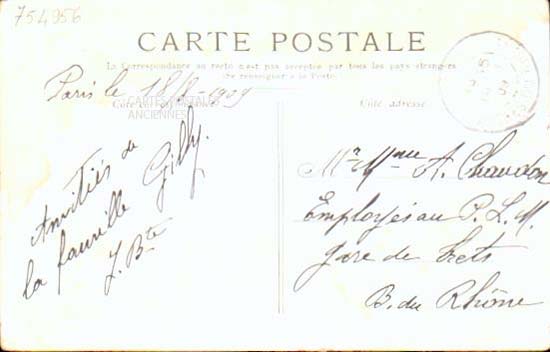 754956
CARTE POSTALE
La Correspondance au recto n'est pas acceptée par tous les pays étrangers
(Se renseigner à la Poste)
Paris le 18/8 - 1909
Côté correspondance
Côté adresse
CARTES POSTALES
ANCIENNES
Amitiés de
la famille Gilly.
J. Bte
Mr Mme A. Chaudon
Employés au P. L. M.
Gare de Trets
B. du Rhône